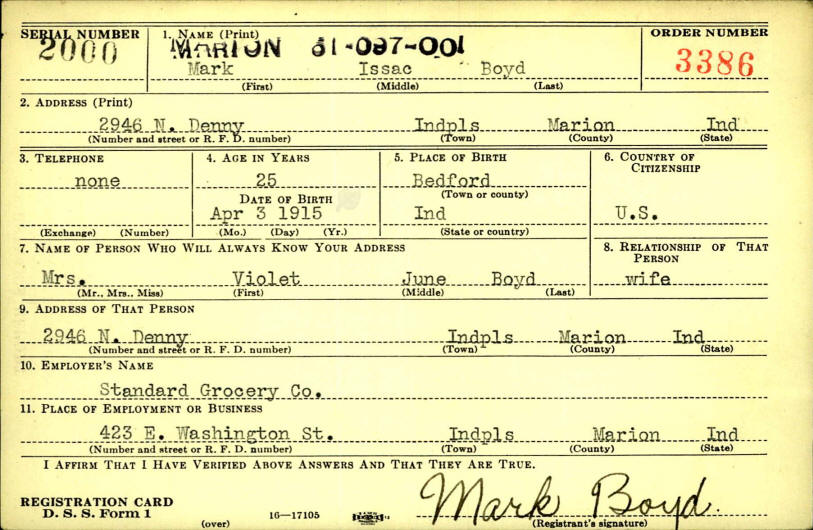 SERIAL NUMBER 1. NAME (Print) ORDER NUMBER
2000 MARION 61-097-001 3386
Mark Issac Boyd
(First) (Middle) (Last)
2. ADDRESS (Print)
2946 N. Denny Indpls Marion Ind
(Number and street or R. F. D. number) (Town) (County) (State)
3. TELEPHONE 4. AGE IN YEARS 5. PLACE OF BIRTH 6. COUNTRY OF CITIZENSHIP
none 25 Bedford
DATE OF BIRTH (Town or county)
Apr 3 1915 Ind U.S.
(Exchange) (Number) (Mo.) (Day) (Yr.) (State or country)
7. NAME OF PERSON WHO WILL ALWAYS KNOW YOUR ADDRESS 8. RELATIONSHIP OF THAT PERSON
Mrs. Violet June Boyd wife
(Mr., Mrs., Miss) (First) (Middle) (Last)
9. ADDRESS OF THAT PERSON
2946 N. Denny Indpls Marion Ind
(Number and street or R. F. D. number) (Town) (County) (State)
10. EMPLOYER'S NAME
Standard Grocery Co.
11. PLACE OF EMPLOYMENT OR BUSINESS
423 E. Washington St. Indpls Marion Ind
(Number and street or R. F. D. number) (Town) (County) (State)
I AFFIRM THAT I HAVE VERIFIED ABOVE ANSWERS AND THAT THEY ARE TRUE.
REGISTRATION CARD Mark Boyd.
D. S. S. Form 1 (over) 16—17105 (Registrant's signature)